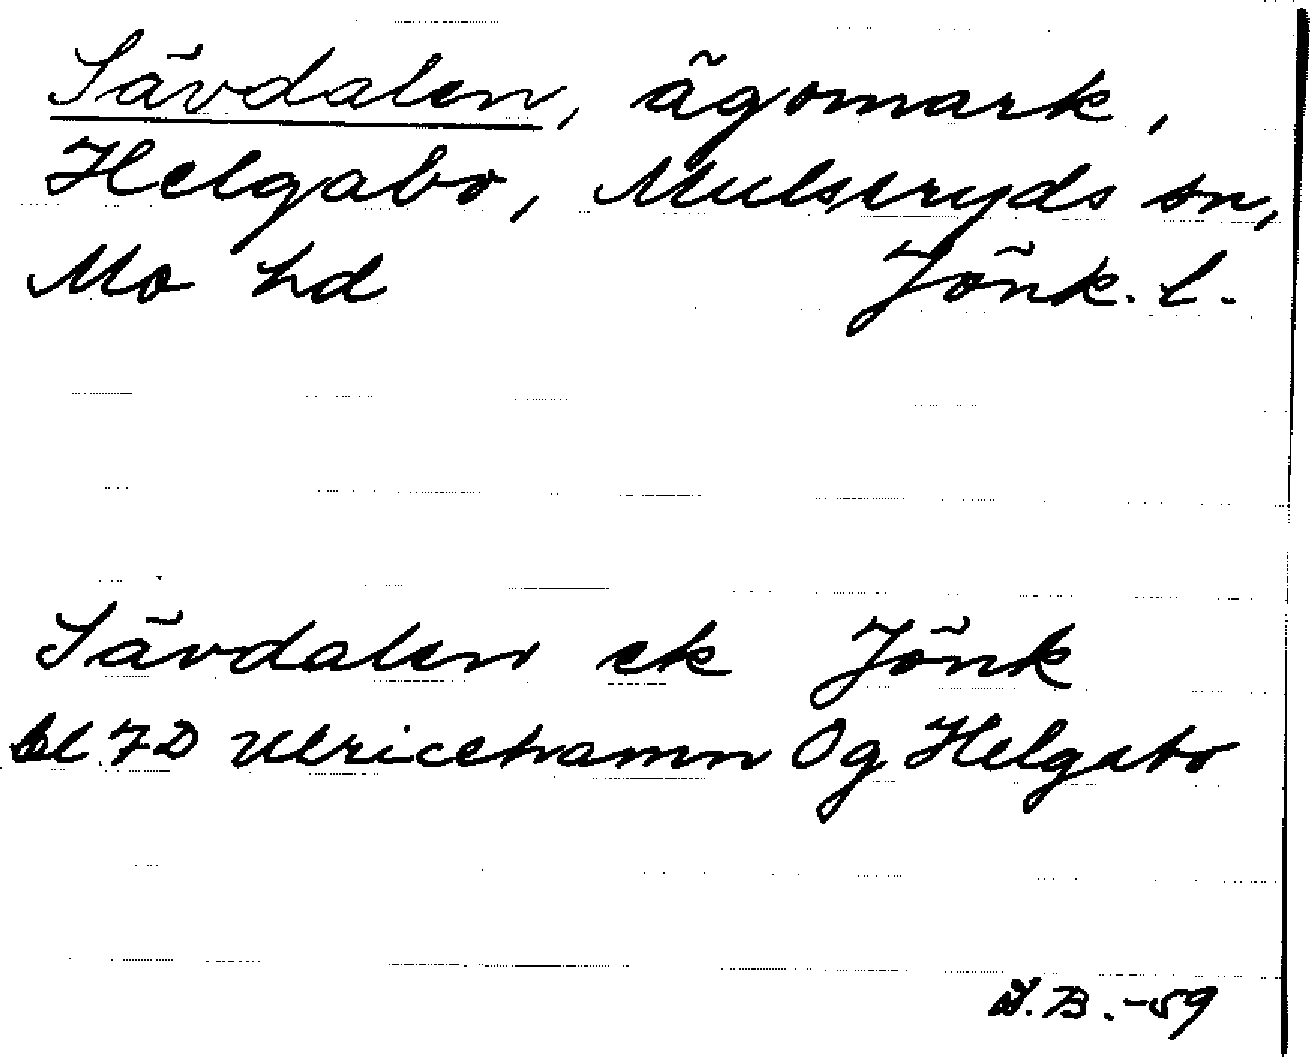 Sävdalen, ägomark,
Helgabo, Mulseryds sn,
Mo hd Jönk. l.
Sävdalen ek Jönk
bl 7D Ulricehamn Og Helgabo
B. -59